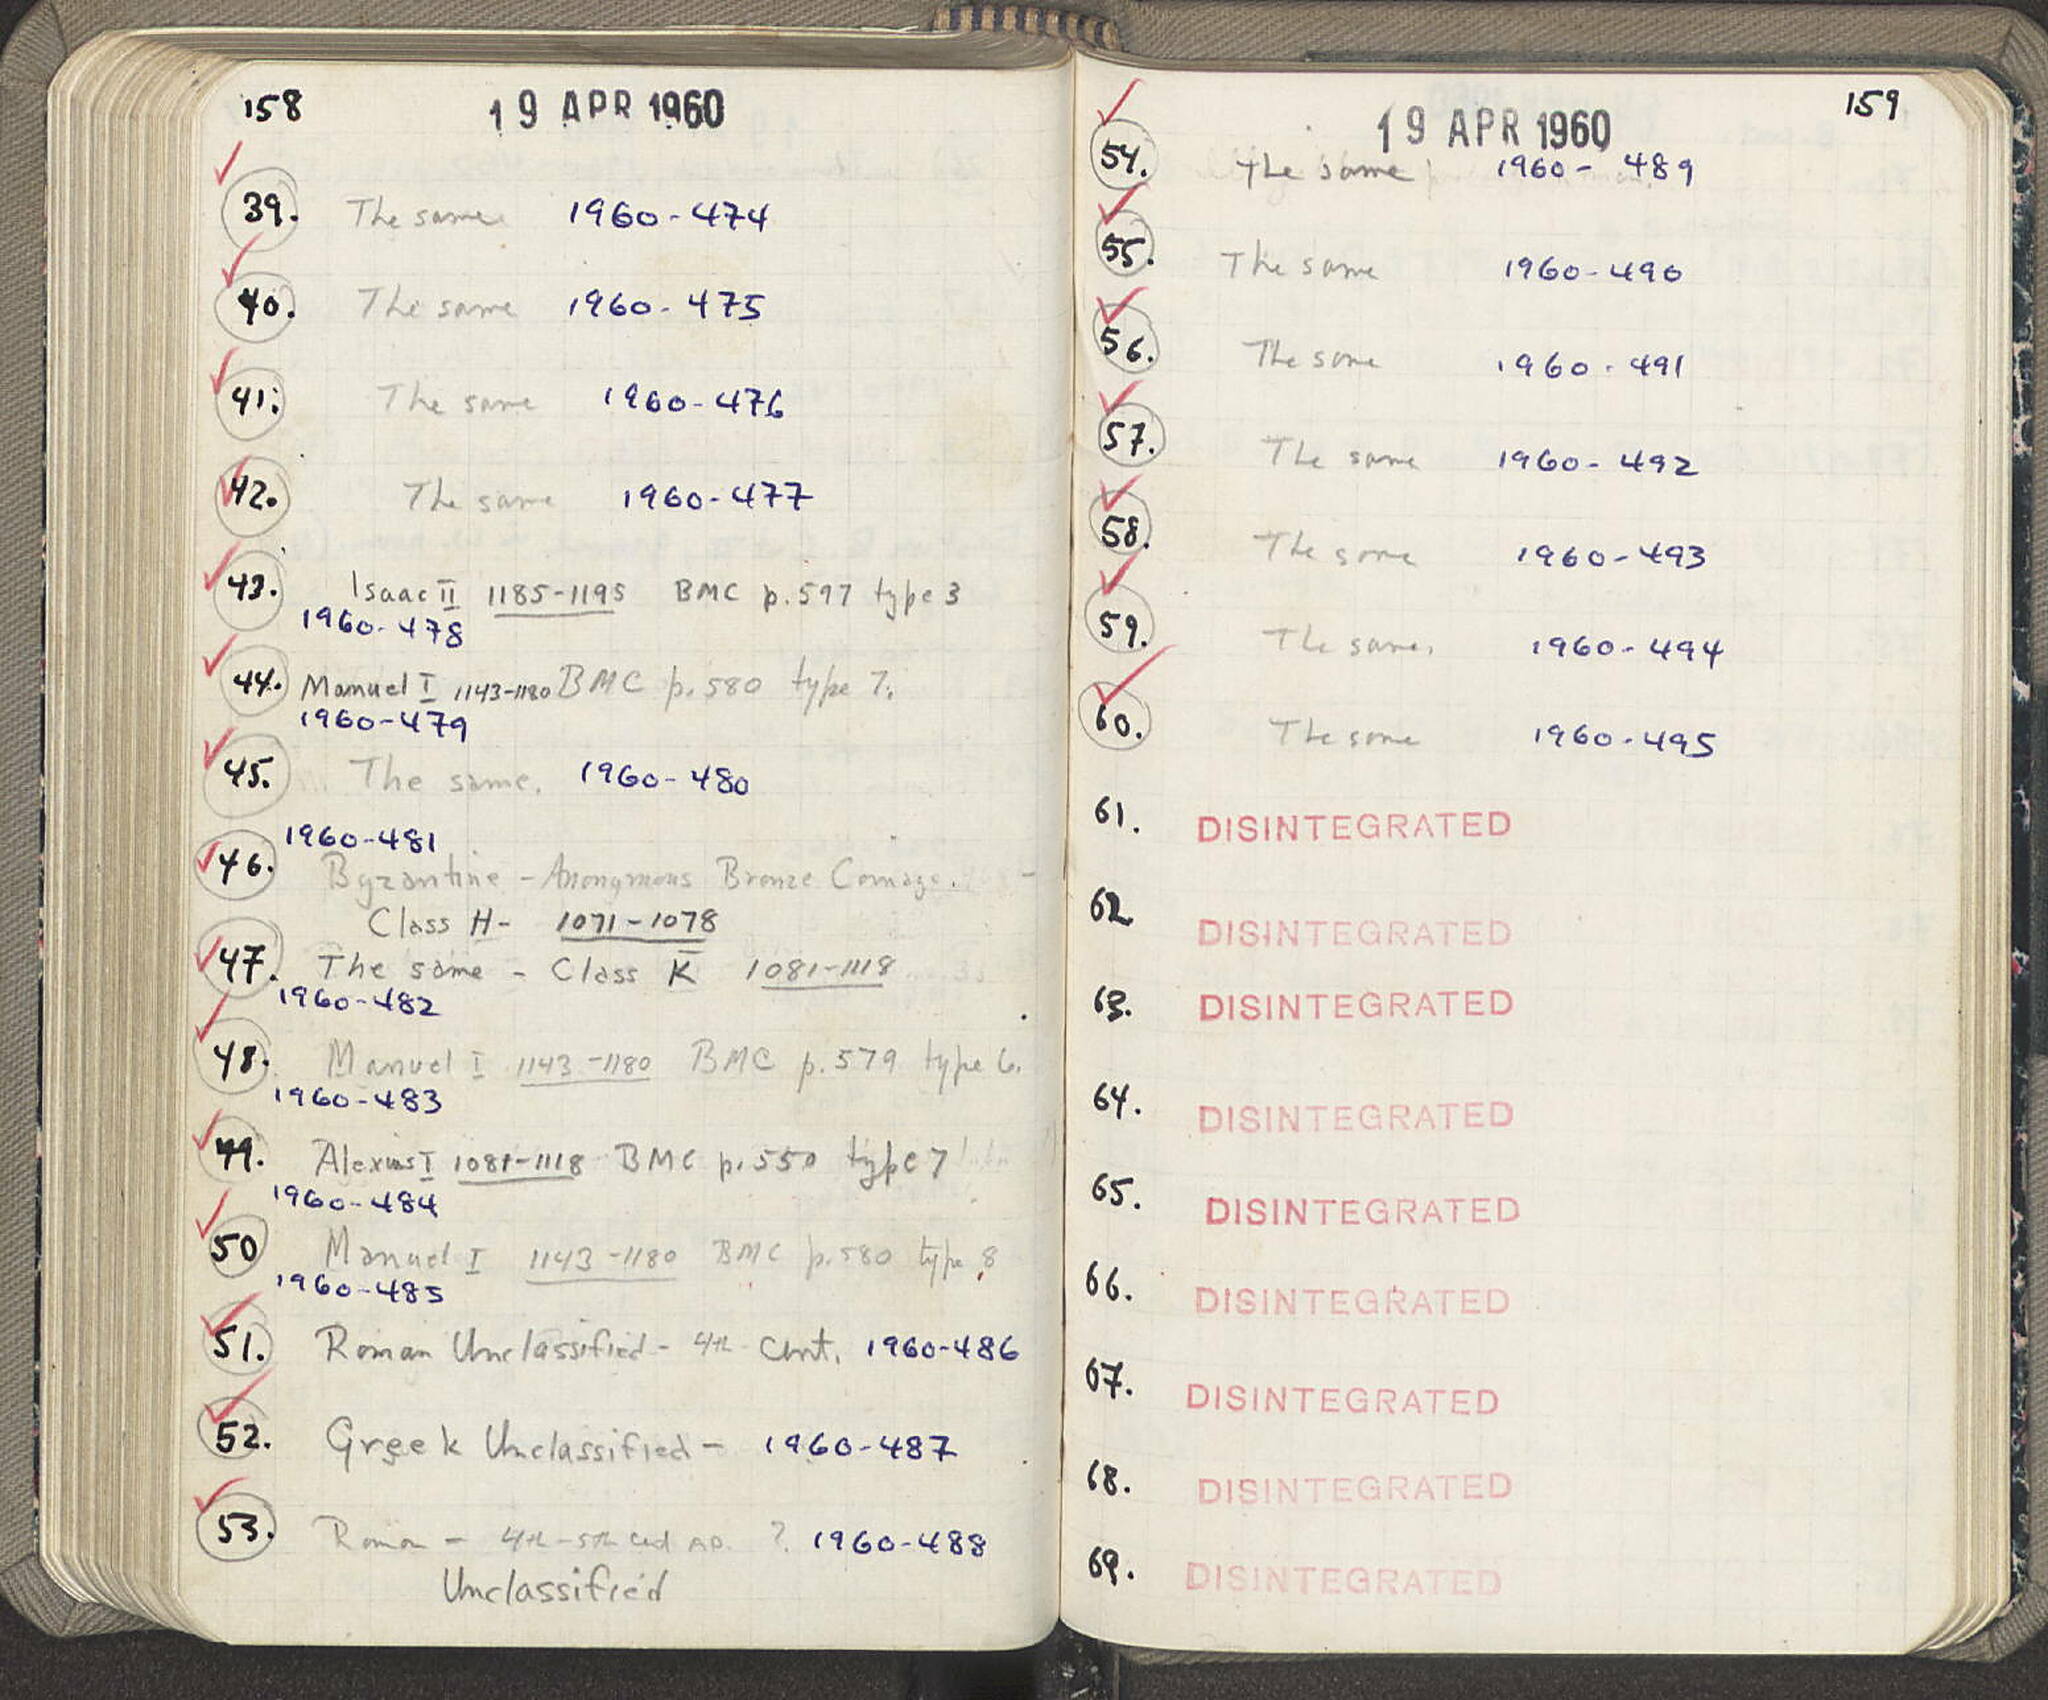 158
19 APR 1960
39. The same 1960-474
40. The same 1960-475
41. The same 1960-476
42. The same 1960-477
43. Isaac II 1185-1195 BMC p. 597 type 3
1960-478
44. Manuel I 1143-1180 BMC p. 580 type 7.
1960-479
45. The same. 1960-480
1960-481
46. Byzantine - Anonymous Bronze Coinage.
Class H- 1071-1078
47. The same - Class K 1081-1118
1960-482
48. Manuel I 1143-1180 BMC p. 579 type 6.
1960-483
49. Alexius I 1081-1118 BMC p. 550 type 7
1960-484
50 Manuel I 1143-1180 BMC p. 580 type 8
1960-485
51. Roman Unclassified - 4th Cent. 1960-486
52. Greek Unclassified - 1960-487
53. Roman - 4th-5th cent A.D. ? 1960-488
Unclassified
159
19 APR 1960
54. The same 1960-489
55. The same 1960-490
56. The same 1960-491
57. The same 1960-492
58. The same 1960-493
59. The same. 1960-494
60. The same 1960-495
61. DISINTEGRATED
62 DISINTEGRATED
63. DISINTEGRATED
64. DISINTEGRATED
65. DISINTEGRATED
66. DISINTEGRATED
67. DISINTEGRATED
68. DISINTEGRATED
69. DISINTEGRATED